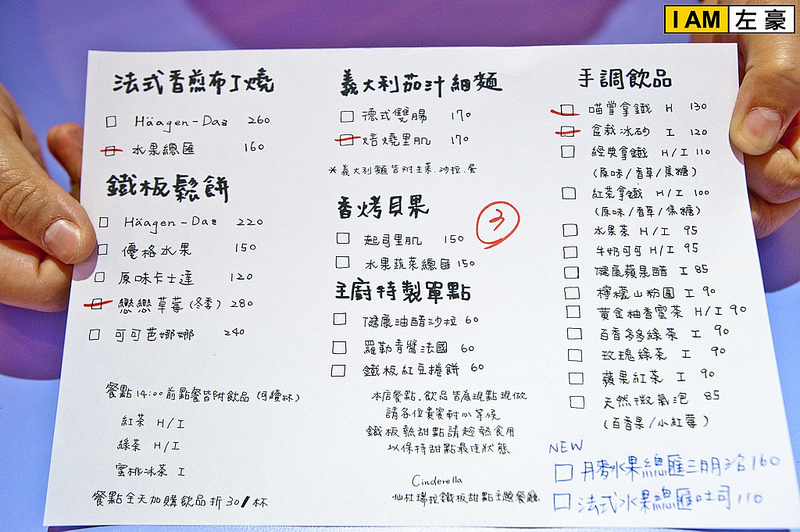 I AM 左豪
法式香煎布丁燒
Häagen-Daz 260
水果總匯 160
鐵板鬆餅
Häagen-Daz 220
優格水果 150
原味卡士達 120
戀戀草莓(冬季) 280
可可芭娜娜 240
餐點14:00前點餐皆附飲品(可續杯)
紅茶 H/I
綠茶 H/I
蜜桃冰茶 I
餐點全天加購飲品折30/杯
義大利茄汁細麵
德式雙腸 170
焙燒里肌 170
*義大利麵皆附主菜.沙拉.餐
香烤貝果
起司里肌 150
水果蔬菜總匯 150
3
主廚特製單點
健康油醋沙拉 60
羅勒青醬法國 60
鐵板紅豆捲餅 60
本店餐點.飲品皆為現點現做
請各位貴賓耐心等候
鐵板熱甜點請趁熱食用
以保持甜點最佳狀態
Cinderella
仙杜瑞拉鐵板甜點主題餐廳
手調飲品
喵掌拿鐵 H 130
盆栽冰砂 I 120
經典拿鐵 H/I 110
(原味/香草/焦糖)
紅茶拿鐵 H/I 100
(原味/香草/焦糖)
水果茶 H/I 95
牛奶可可 H/I 95
健康蘋果醋 I 85
檸檬山粉圓 I 90
黃金柚香蜜茶 H/I 90
百香多多綠茶 I 90
玫瑰綠茶 I 90
蘋果紅茶 I 90
天然微氣泡 85
(百香果/小紅莓)
NEW
丹麥水果總匯三明治 160
法式水果總匯吐司 110